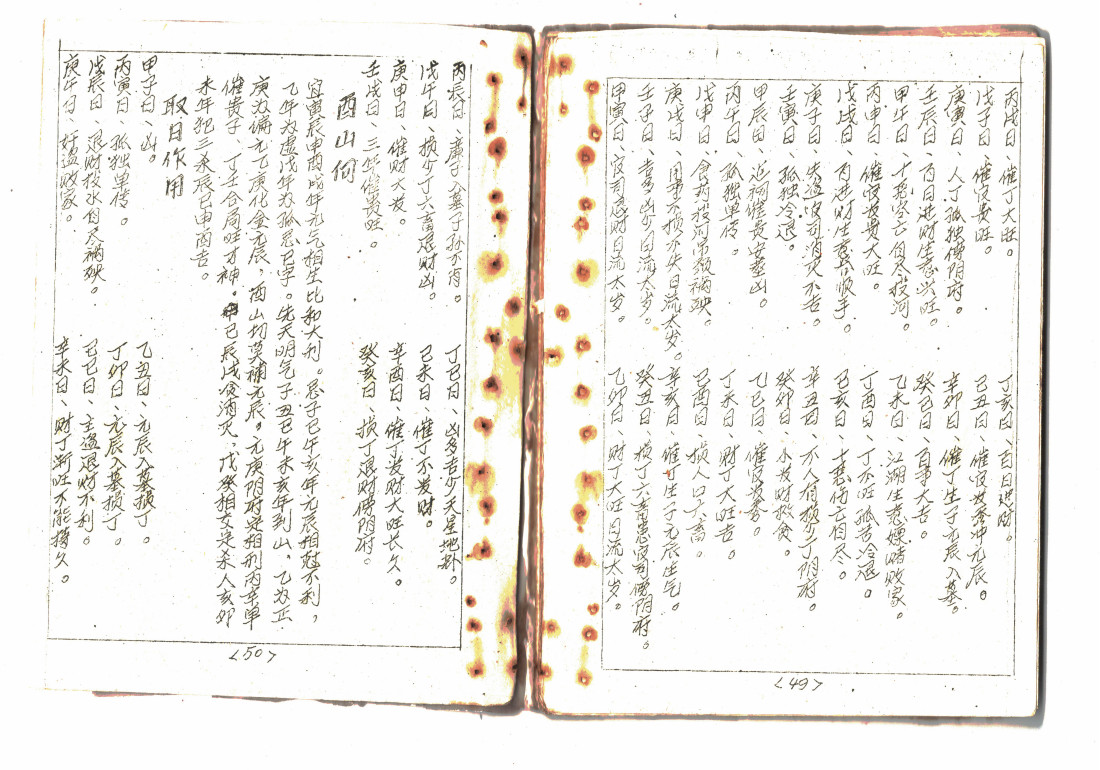 丙戌日、催丁大旺。 丁亥日、百日进财。
戊子日、催官贵旺。 己丑日、催官发秀冲元辰。
庚寅日、人丁孤独傍阴府。 辛卯日、催丁生子元辰入墓。
壬辰日、百日进财生意兴旺。 癸巳日、百事大吉。
甲午日、十恶灾亡自尽投河。 乙未日、江湖生意嫖赌败家。
丙申日、催官发贵大旺。 丁酉日、丁不旺孤苦冷退。
戊戌日、丙进财生意合顺手。 己亥日、十恶伤亡自尽。
庚子日、失盗官司消灭不吉。 辛丑日、不人有损少丁阴府。
壬寅日、孤独冷退。 癸卯日、小发财救贫。
甲辰日、近祠催贵安墓凶。 乙巳日、催官发秀。
丙午日、孤独单传。 丁未日、财丁大旺吉。
戊申日、食药投河吊颈祸殃。 己酉日、损人口六畜。
庚戌日、用事不损亦失日流太岁。 辛亥日、催丁生子元辰生气。
壬子日、吉多凶少日流太岁。 癸丑日、损丁六畜患官司傍阴府。
甲寅日、官司忌财日流太岁。 乙卯日、财丁大旺日流太岁。
<49>
丙辰日、妻子入墓子孙不肖。 丁巳日、凶多吉少天星地卦。
戊午日、损少丁六畜退财凶。 己未日、催丁不发财。
庚申日、催财大发。 辛酉日、催丁发财大旺长久。
壬戌日、三年催贵旺。 癸亥日、损丁退财傍阴府。
酉山向
宜寅辰申酉戌年元气相生比和大利。忌子巳午亥年元辰相冠不利，
乙年为虚戊年为孤忌巳字。先天明气子丑巳午未亥年到山，乙为正
庚为偏元乙庚化金元辰，酉山切莫补元辰。元庚阴府杀相刑丙辛单
催贵子，丁壬合局旺才神。己辰戌食消灭，戊癸相交是杀人亥卯
未年犯三杀辰巳申酉吉。
取日作用
甲子日、凶。 乙丑日、元辰入墓损丁。
丙寅日、孤独单传。 丁卯日、元辰入墓损丁。
戊辰日、退财投水自尽祸殃。 己巳日、主盗退财不利。
庚午日、奸盗败家。 辛未日、财丁渐旺不能持久。
<50>